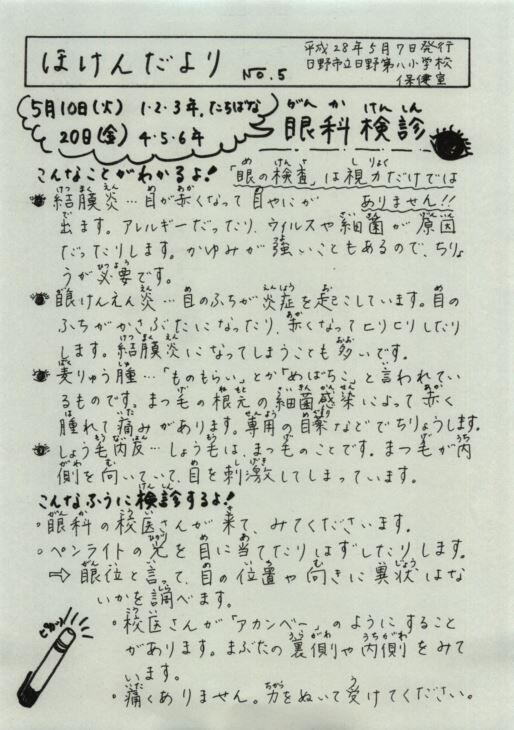 ほけんだより No.5
平成28年5月7日発行
日野市立日野第八小学校
保健室
5月10日(火) 1・2・3年,たちばな
20日(金) 4・5・6年
眼科検診
こんなことがわかるよ! 「眼の検査」は視力だけでは
ありません!!
結膜炎…目が赤くなって目やにが
出ます。アレルギーだったり、ウイルスや細菌が原因
だったりします。かゆみが強いこともあるので、ちりょ
うが必要です。
眼けんえん炎…目のふちが炎症を起こしています。目の
ふちがかさぶたになったり、赤くなってヒリヒリしたり
します。結膜炎になってしまうことも多いです。
麦りゅう腫…「ものもらい」とか「めばちこ」と言われてい
るものです。まつ毛の根元の細菌感染によって赤く
腫れて痛みがあります。専用の目薬などでちりょうします。
しょう毛内反…しょう毛は、まつ毛のことです。まつ毛が内
側を向いていて、目を刺激してしまっています。
こんなふうに検診するよ!
・眼科の校医さんが来て、みてくださいます。
・ペンライトの光を目に当てたりはずしたりします。
⇒眼位と言って、目の位置や向きに異状はな
いかを調べます。
・校医さんが「アカンベー」のようにすること
があります。まぶたの裏側や内側をみて
います。
・痛くありません。力をぬいて受けてください。
ピカッ